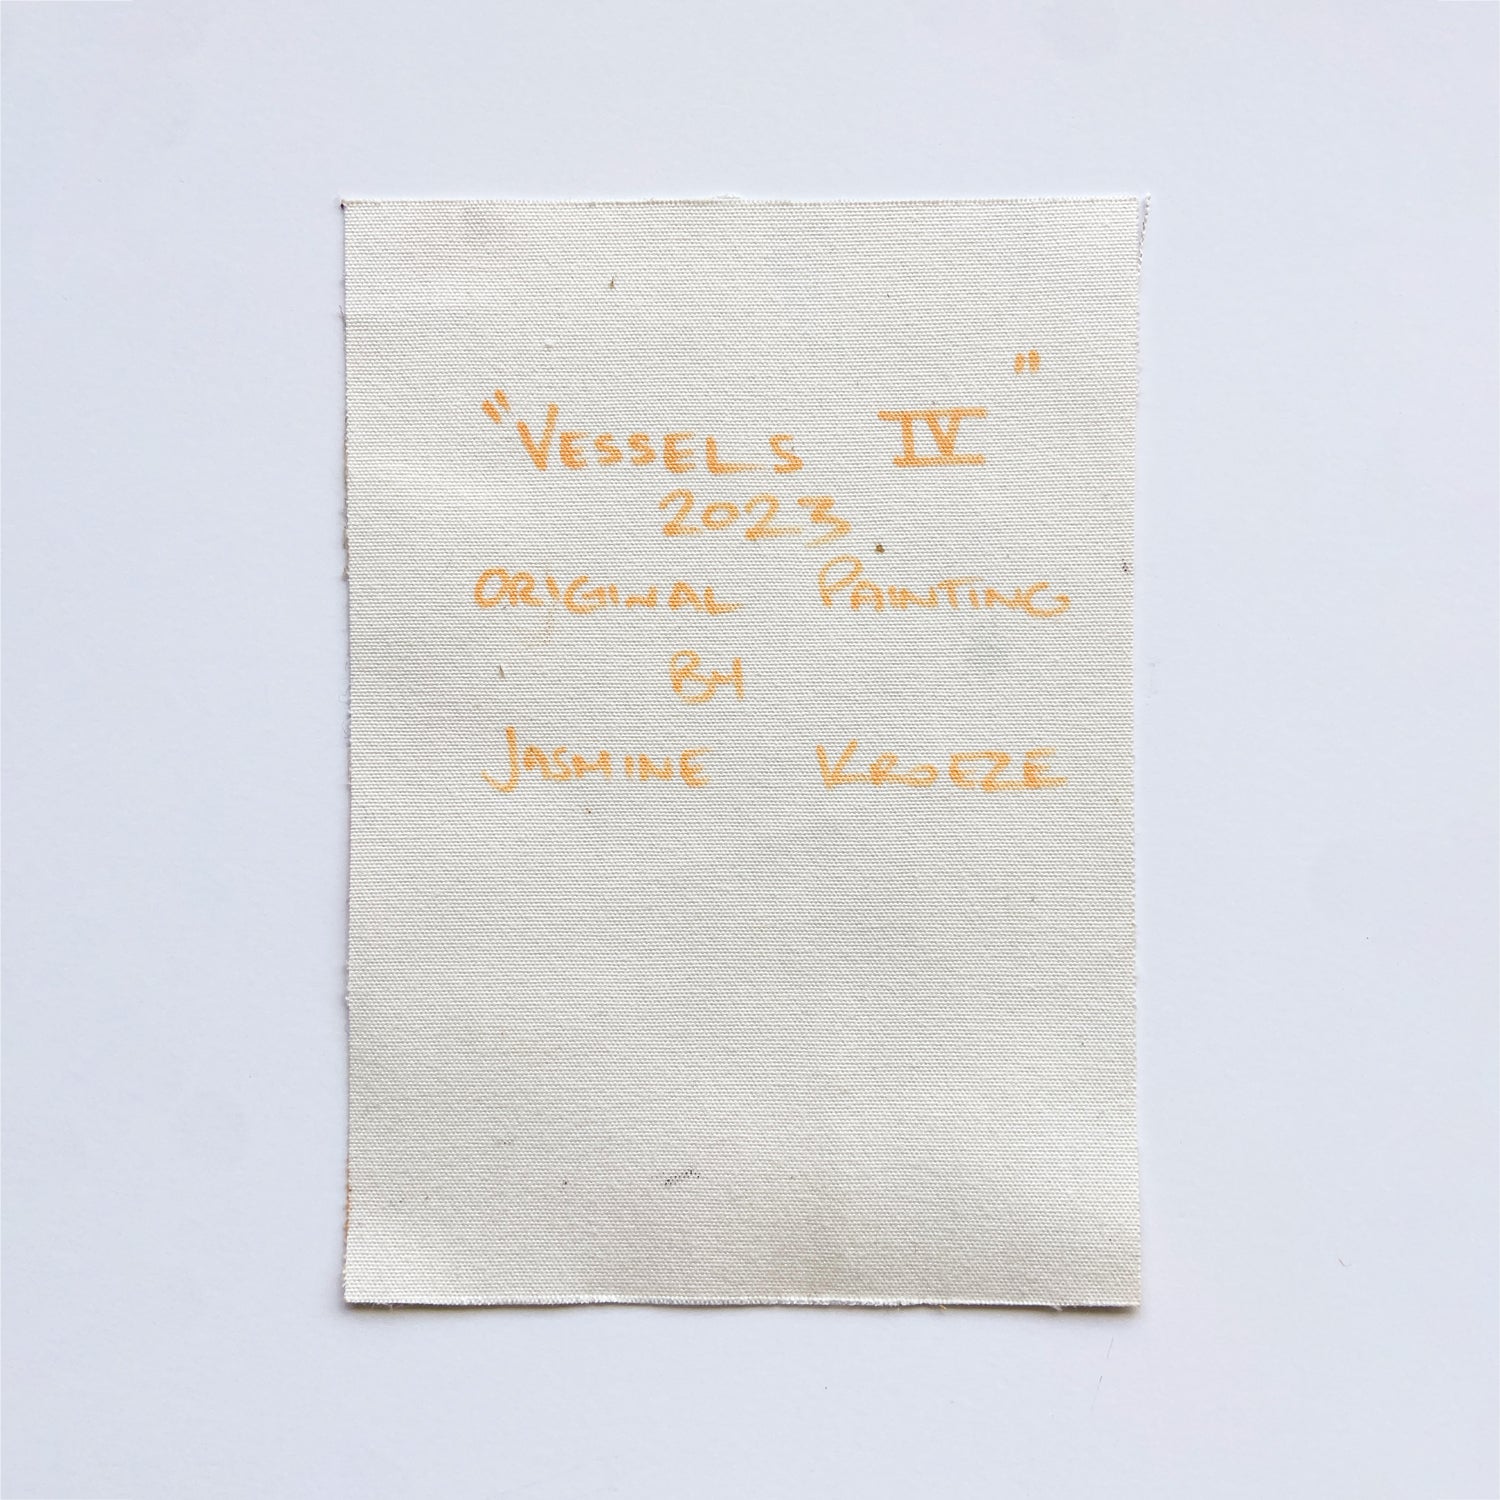 "VESSELS IV"
2023
ORIGINAL PAINTING
BY
JASMINE KROEZE